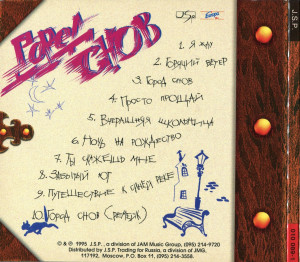 Город
Снов
J.S.P.
1. Я жду
2. Горячий ветер
3. Город снов
4. Просто прощай
5. Вчерашняя школьница
6. Ночь на рождество
7. Ты скажешь мне
8. Забытый юг
9. Путешествие к синей реке
10. Город снов (
© & ℗ 1995 J.S.P., a division of JAM Music Group, (095) 214-9720
Distributed by J.S.P. Trading for Russia, a division of JMG.
117192, Moscow, P.O. Box 11, (095) 214-3558.